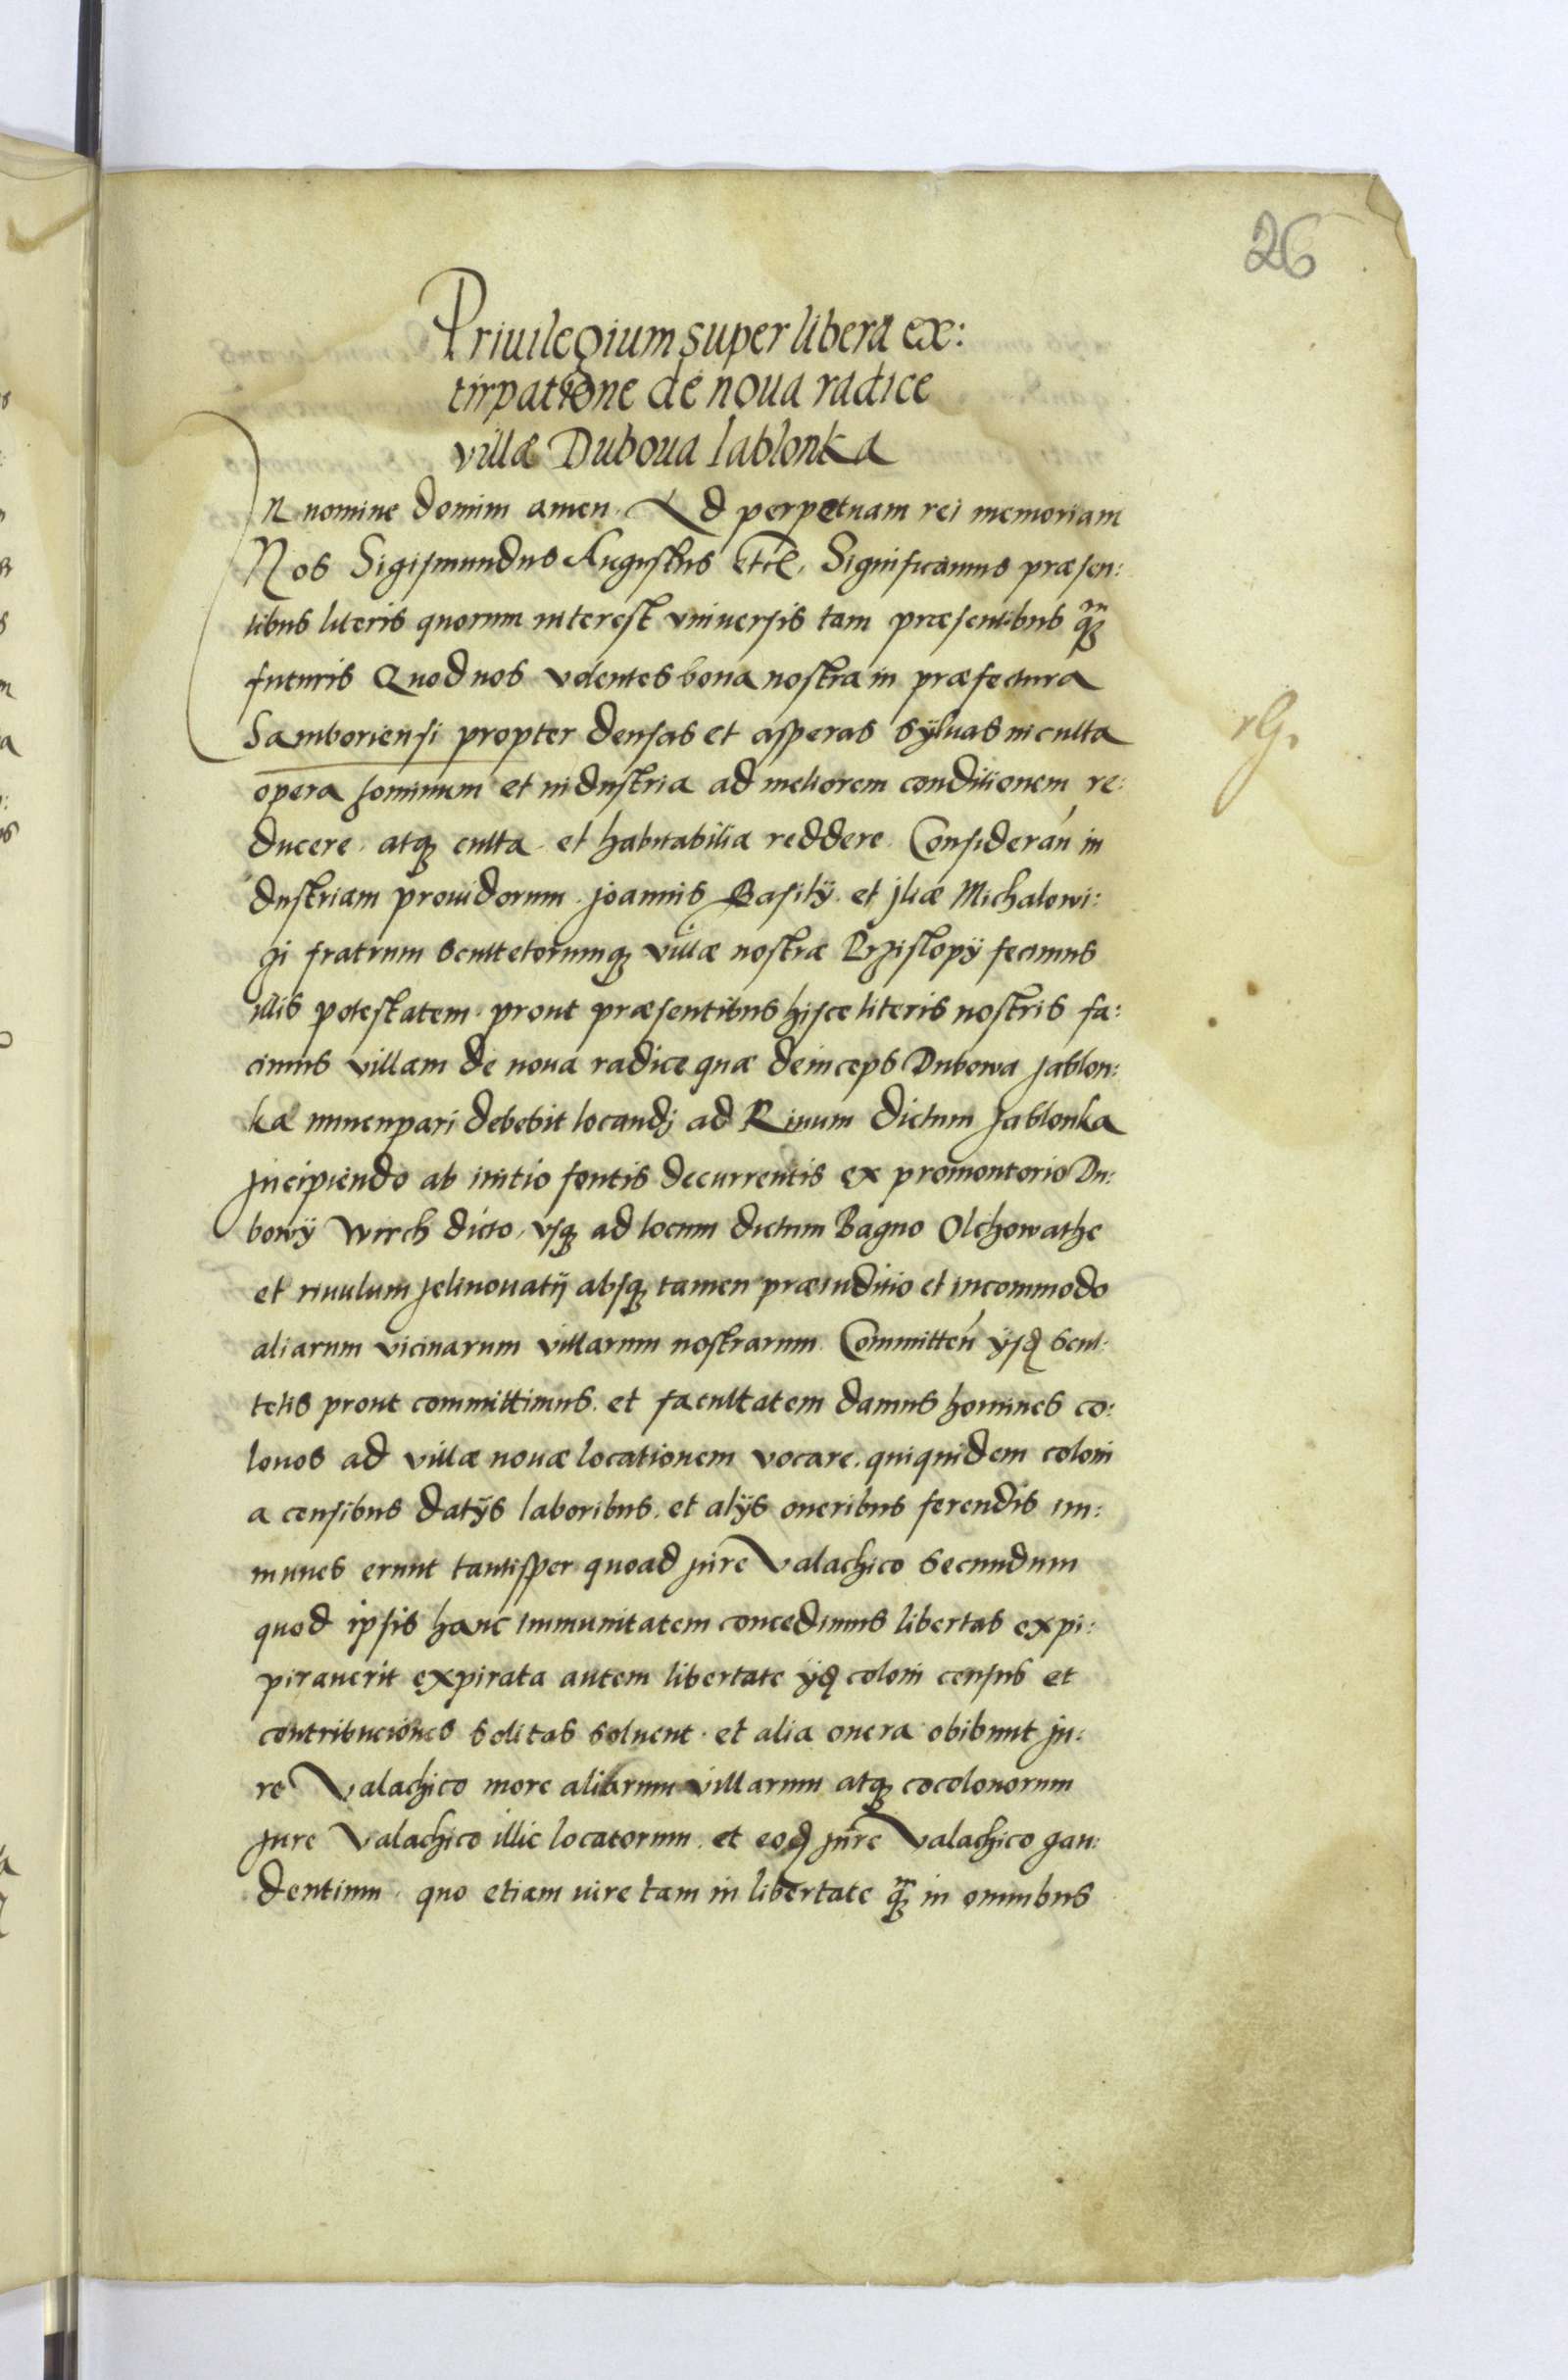 26
Priuilegium super libera ex:
tirpatione de noua radice
villæ Duboua Iablonka
In nomine domini amen. Ad perpetuam rei memoriam
Nos Sigismundus Augustus etc. Significamus præsen:
tibus literis quorum interest vniuersis tam præsentibus q̃ȝ
futuris Quod nos volentes bona nostra in præfectura
Samboriensi propter densas et asperas syluas inculta
opera hominum et industria ad meliorem conditionem re:
ducere. atqȝ culta et habitabilia reddere. Considerań in
dustriam prouidorum. Joannis Basilÿ. et Jliæ Michalowi:
hi fratrum scultetorumqȝ villæ nostræ Przislopÿ fecimus
illis potestatem. prout præsentibus hisce literis nostris fa:
cimus villam de noua radice quæ deinceps Dubowa Jablon:
ka nuncupari debebit locandj ad Riuum dictum Jablonka
Jncipiendo ab initio fontis decurrentis ex promontorio Du:
bowÿ Wirch dicto, vsqȝ ad locum dictum Bagno Olchowathe
et riuulum Jelinouatÿ absqȝ tamen præiuditio et incommodo
aliarum vicinarum villarum nostrarum. Committeń ÿsd scul:
tetis prout committimus. et facultatem damus homines co:
lonos ad villæ nouæ locationem vocare. quiquidem coloni
a censibus datÿs laboribus. et alÿs oneribus ferendis im:
munes erunt tantisper quoad jure Valachico secundum
quod ipsis hanc immunitatem concedimus libertas expi:
pirauerit expirata autem libertate ÿd coloni census et
contribuciones solitas soluent. et alia onera obibunt ju:
re Valachico more aliarum villarum atqȝ cocolonorum
jure Valachico illic locatorum. et eod jure Valachico gau:
dentium. quo etiam iure tam in libertate q̃ȝ in omnibus